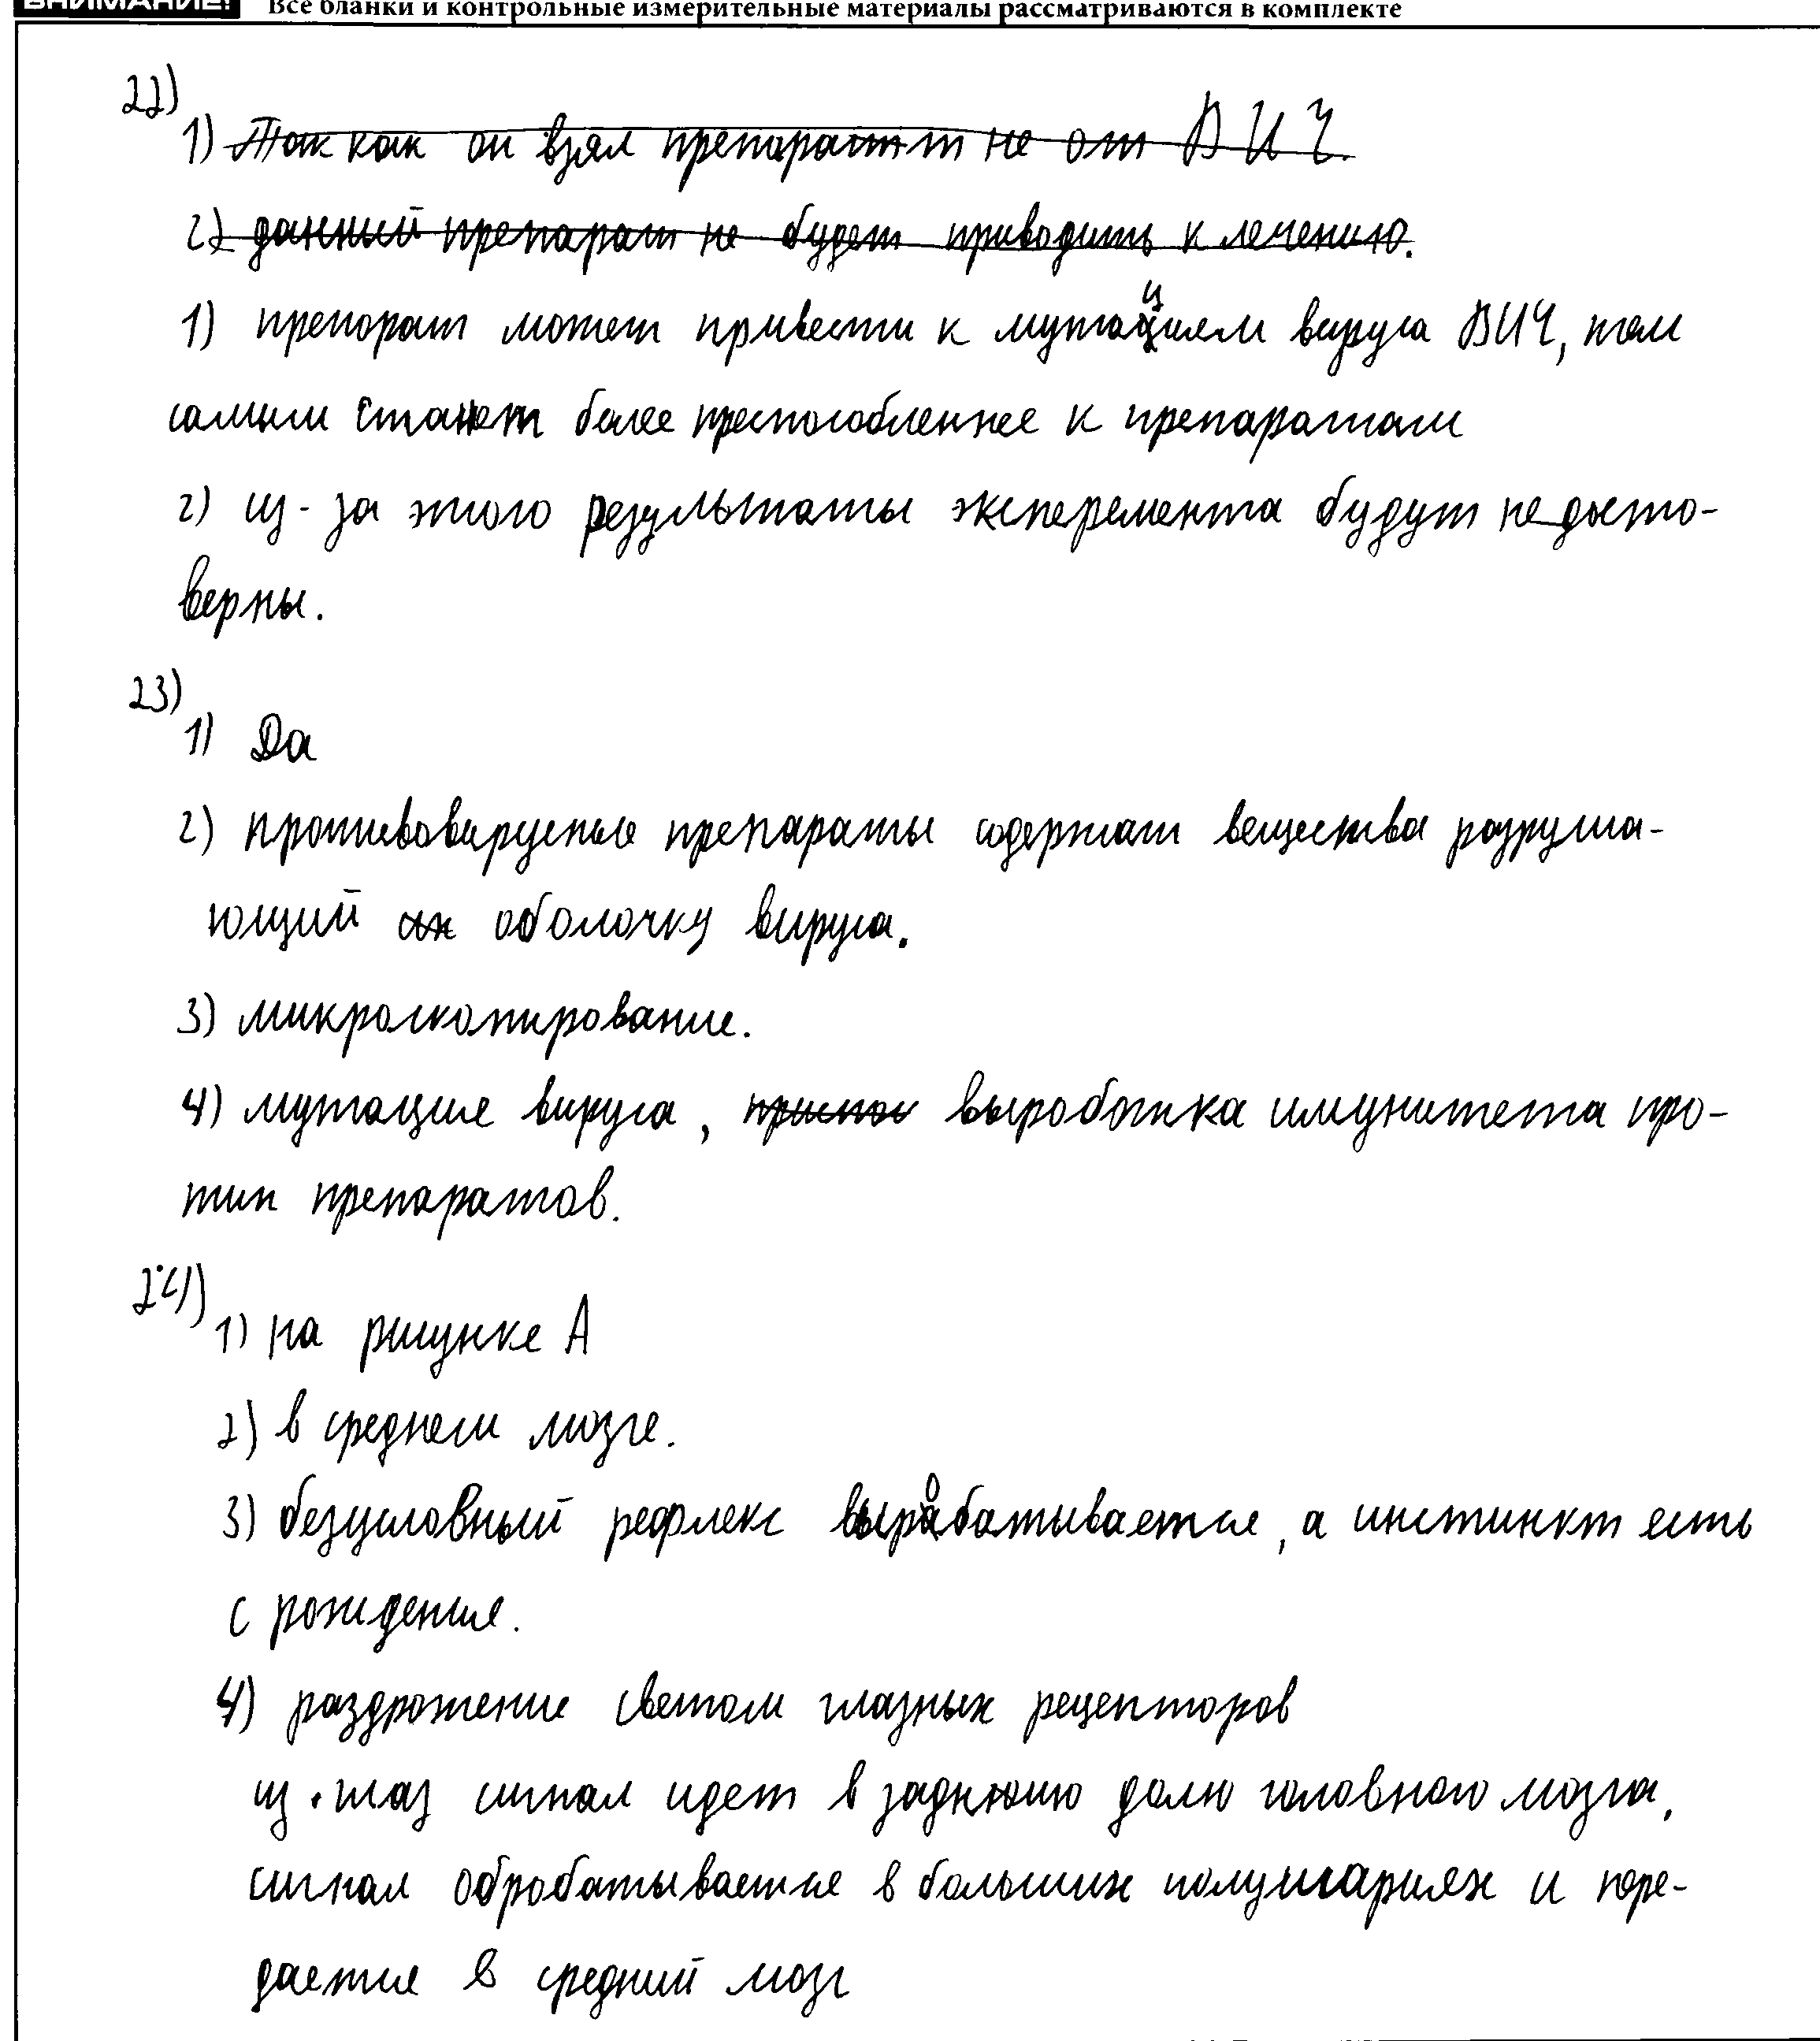 ВНИМАНИЕ! Все бланки и контрольные измерительные материалы рассматриваются в комплекте
22)
1) Так как он взял препарат не от ВИЧ.
2) данный препарат не будет приводить к лечению.
1) препорат может привести к мутациям вируса ВИЧ, тем
самым станет более преспособленнее к препаратам
2) из-за этого результаты эксперемента будут не досто-
верны.
23)
1) Да
2) противовирусные препараты содержат вещества разруша-
ющий оболочку вируса.
3) микроскопирование.
4) мутация вируса, приспос выроботка имунитета про-
тип препаратов.
24)
1) на рисунке А
2) в среднем мозге.
3) безусловный рефлекс выробатывается, а инстинкт есть
с рождения.
4) раздрожение светом глазных рецепторов
из глаз сигнал идет в заднюю долю головного мозга,
сигнал обробатывается в больших полушариях и пере-
дается в средний мозг